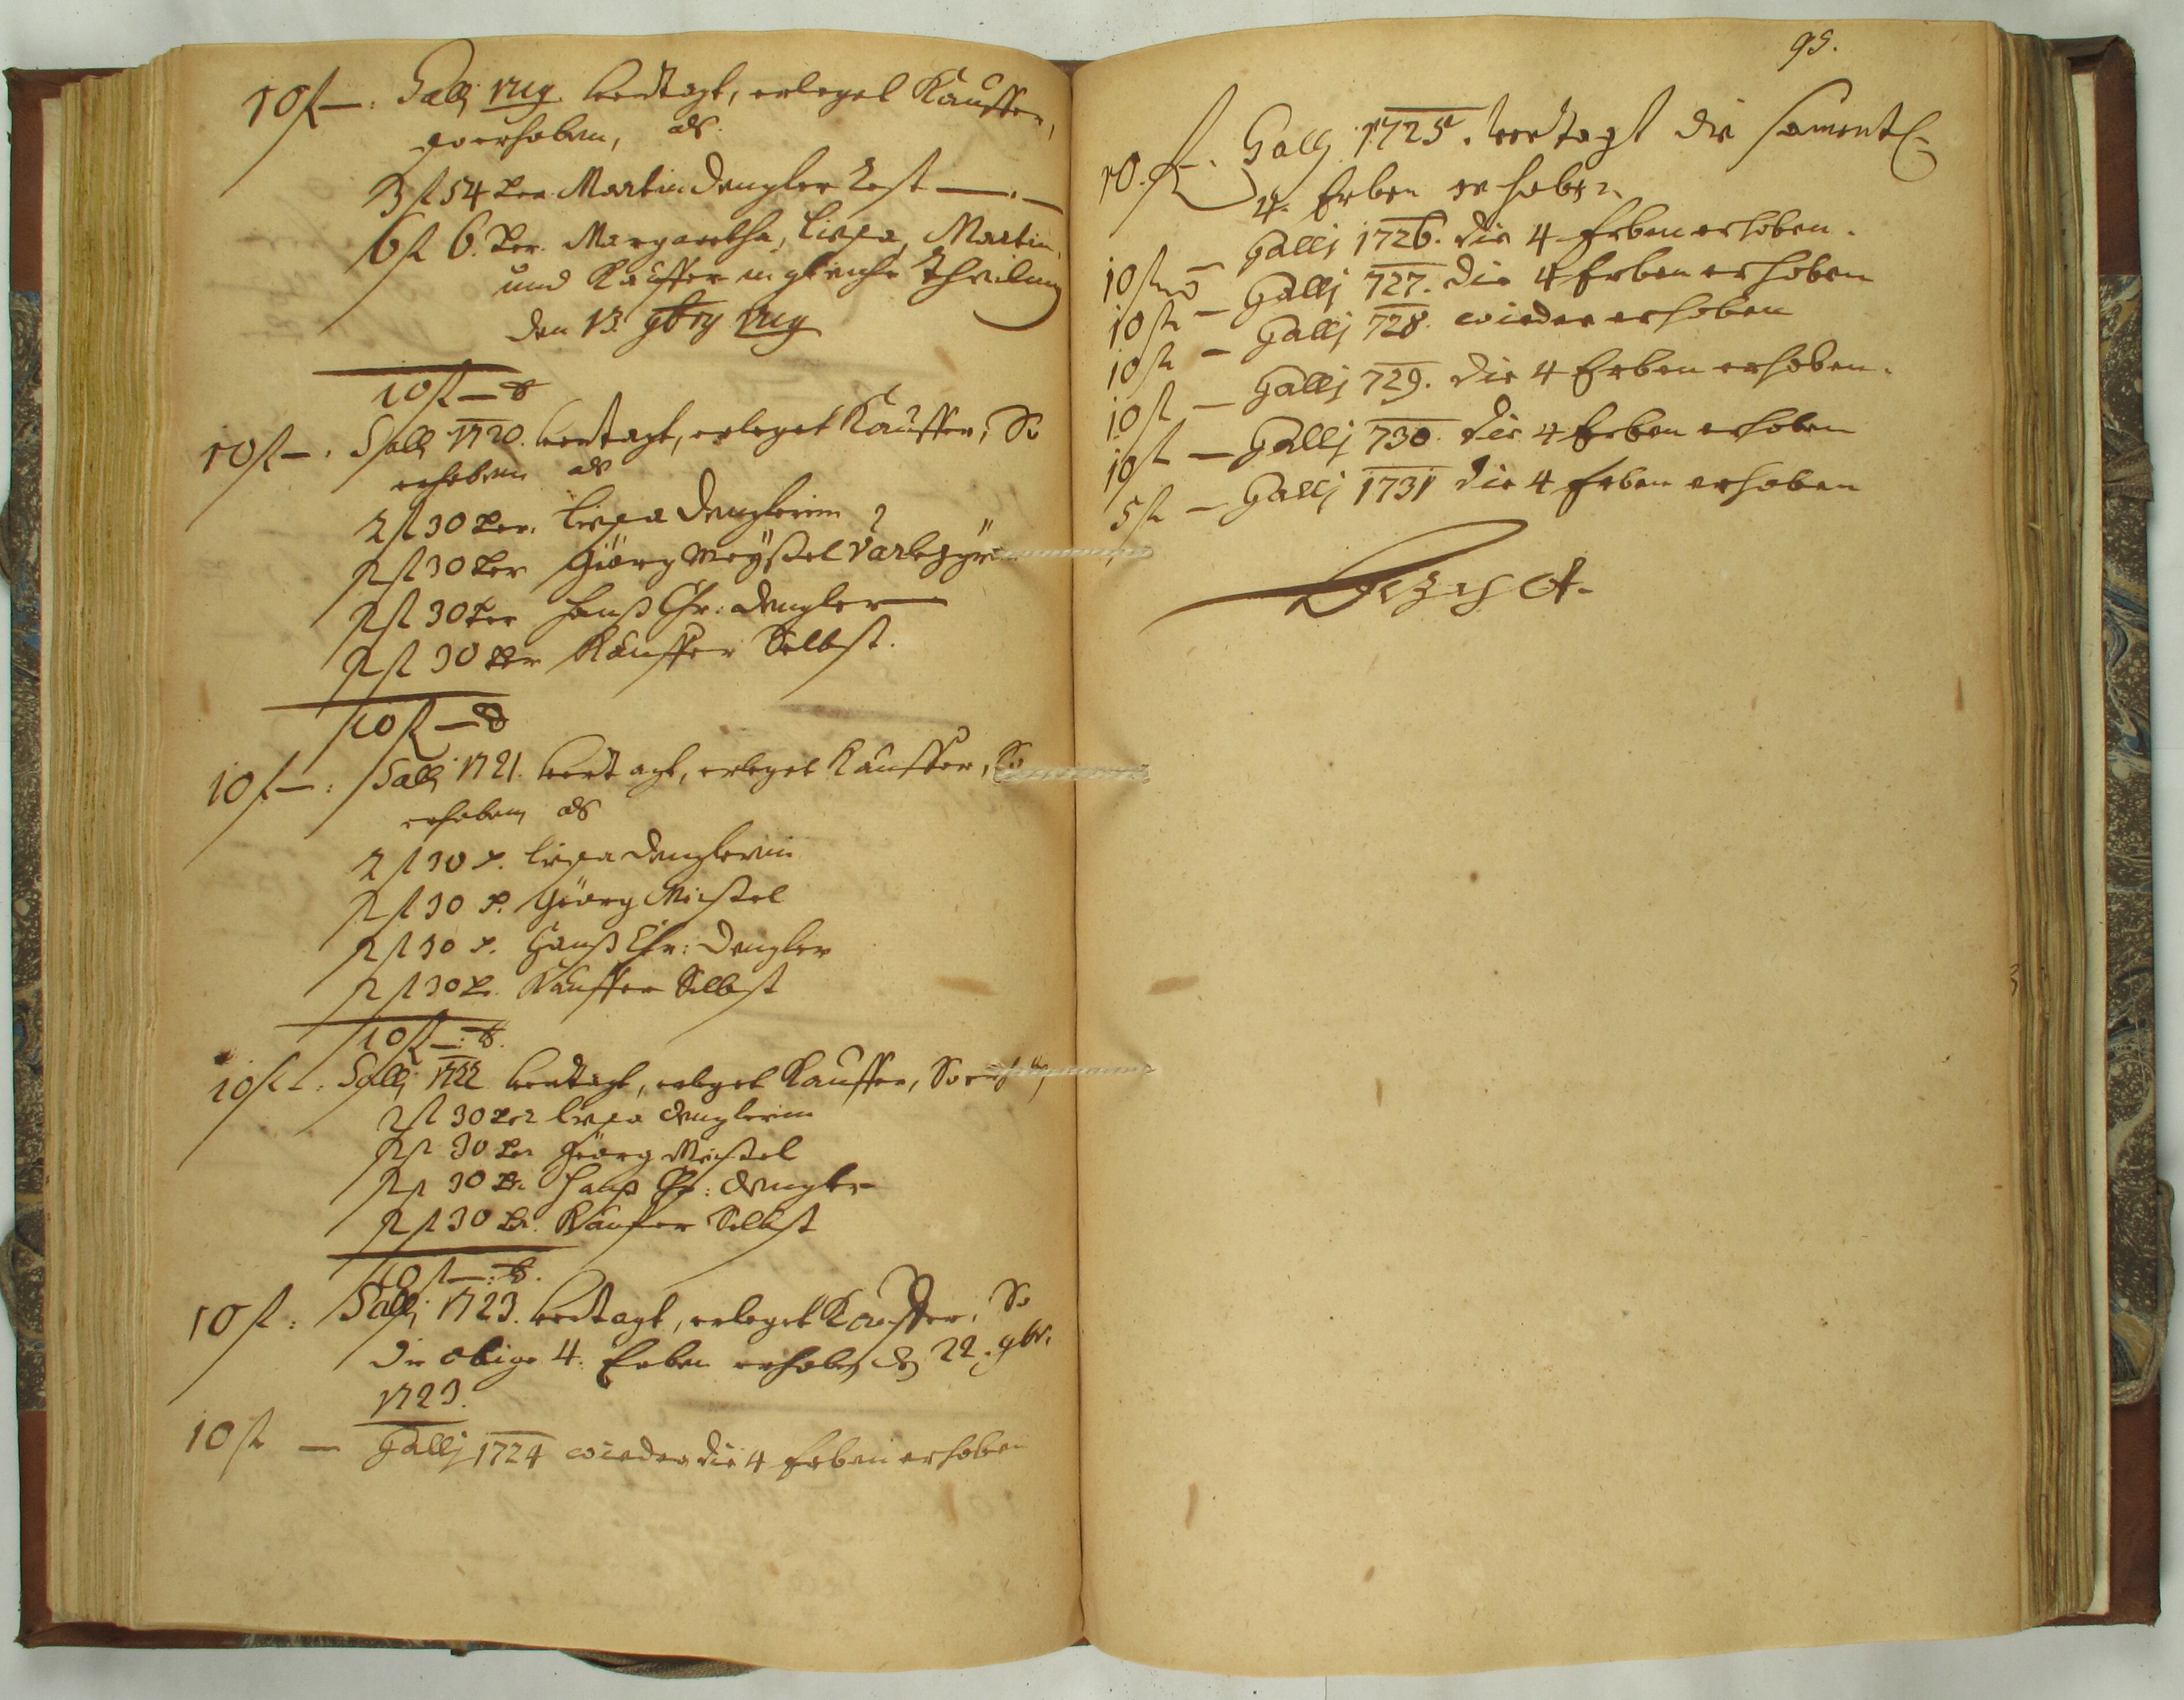 10 fl —: Galli 1719 bertagt, erleget Kauffer,
so erhoben, als.
3 fl 54 kr. Martin Dengler Rest —.—
6 fl 6. kr. Margaretha, Liesa, Martin,
und Kauffer in gleiche Theilung
den 13. 9br 1719
10 fl —
10 fl —: Galli 1720. bertagt, erleget Kauffer, So
erhoben als
2 fl 30 kr. Liesa Denglerin
2 fl 30 kr Görg Meyßel
2 fl 30 kr Hanß Chr: Dengler
2 fl 30 kr Kauffer Selbst.
10 fl —
10 fl —: Galli 1721. bertagt, erleget Kauffer, So
erhoben als
2 fl 30 x. Liesa Denglerin
2 fl 30 x. Görg Meissel
2 fl 30 x. Hanß Chr: Dengler
2 fl 30 kr. Kauffer Selbst
10 fl —:
10 fl —: Galli 1722 bertagt, erleget Kauffer, So
2 fl 30 kr Liesa Denglerin
2 fl 30 kr Görg Meissel
2 fl 30 kr Hanß Chr: Dengler
2 fl 30 kr. Kauffer Selbst
10 fl —:
10 fl: Galli 1723. bertagt, erleget Kauffer, So
die obige 4. Erben erhoben d 22. 9br.
1723.
10 fl — Gallj 1724 wieder die 4 Erben erhoben
95.
10. fl —. Gallj 1725. bertagt die samentl.
4. Erben erhoben
10 fl — Gallj 1726. die 4 Erben erhoben.
10 fl — Gallj 727. die 4 Erben erhoben
10 fl — Gallj 728. wieder erhoben
10 fl — Gallj 729. die 4 Erben erhoben.
10 fl — Gallj 730. die 4 Erben erhoben
5 fl — Gallj 1731 die 4 Erben erhoben